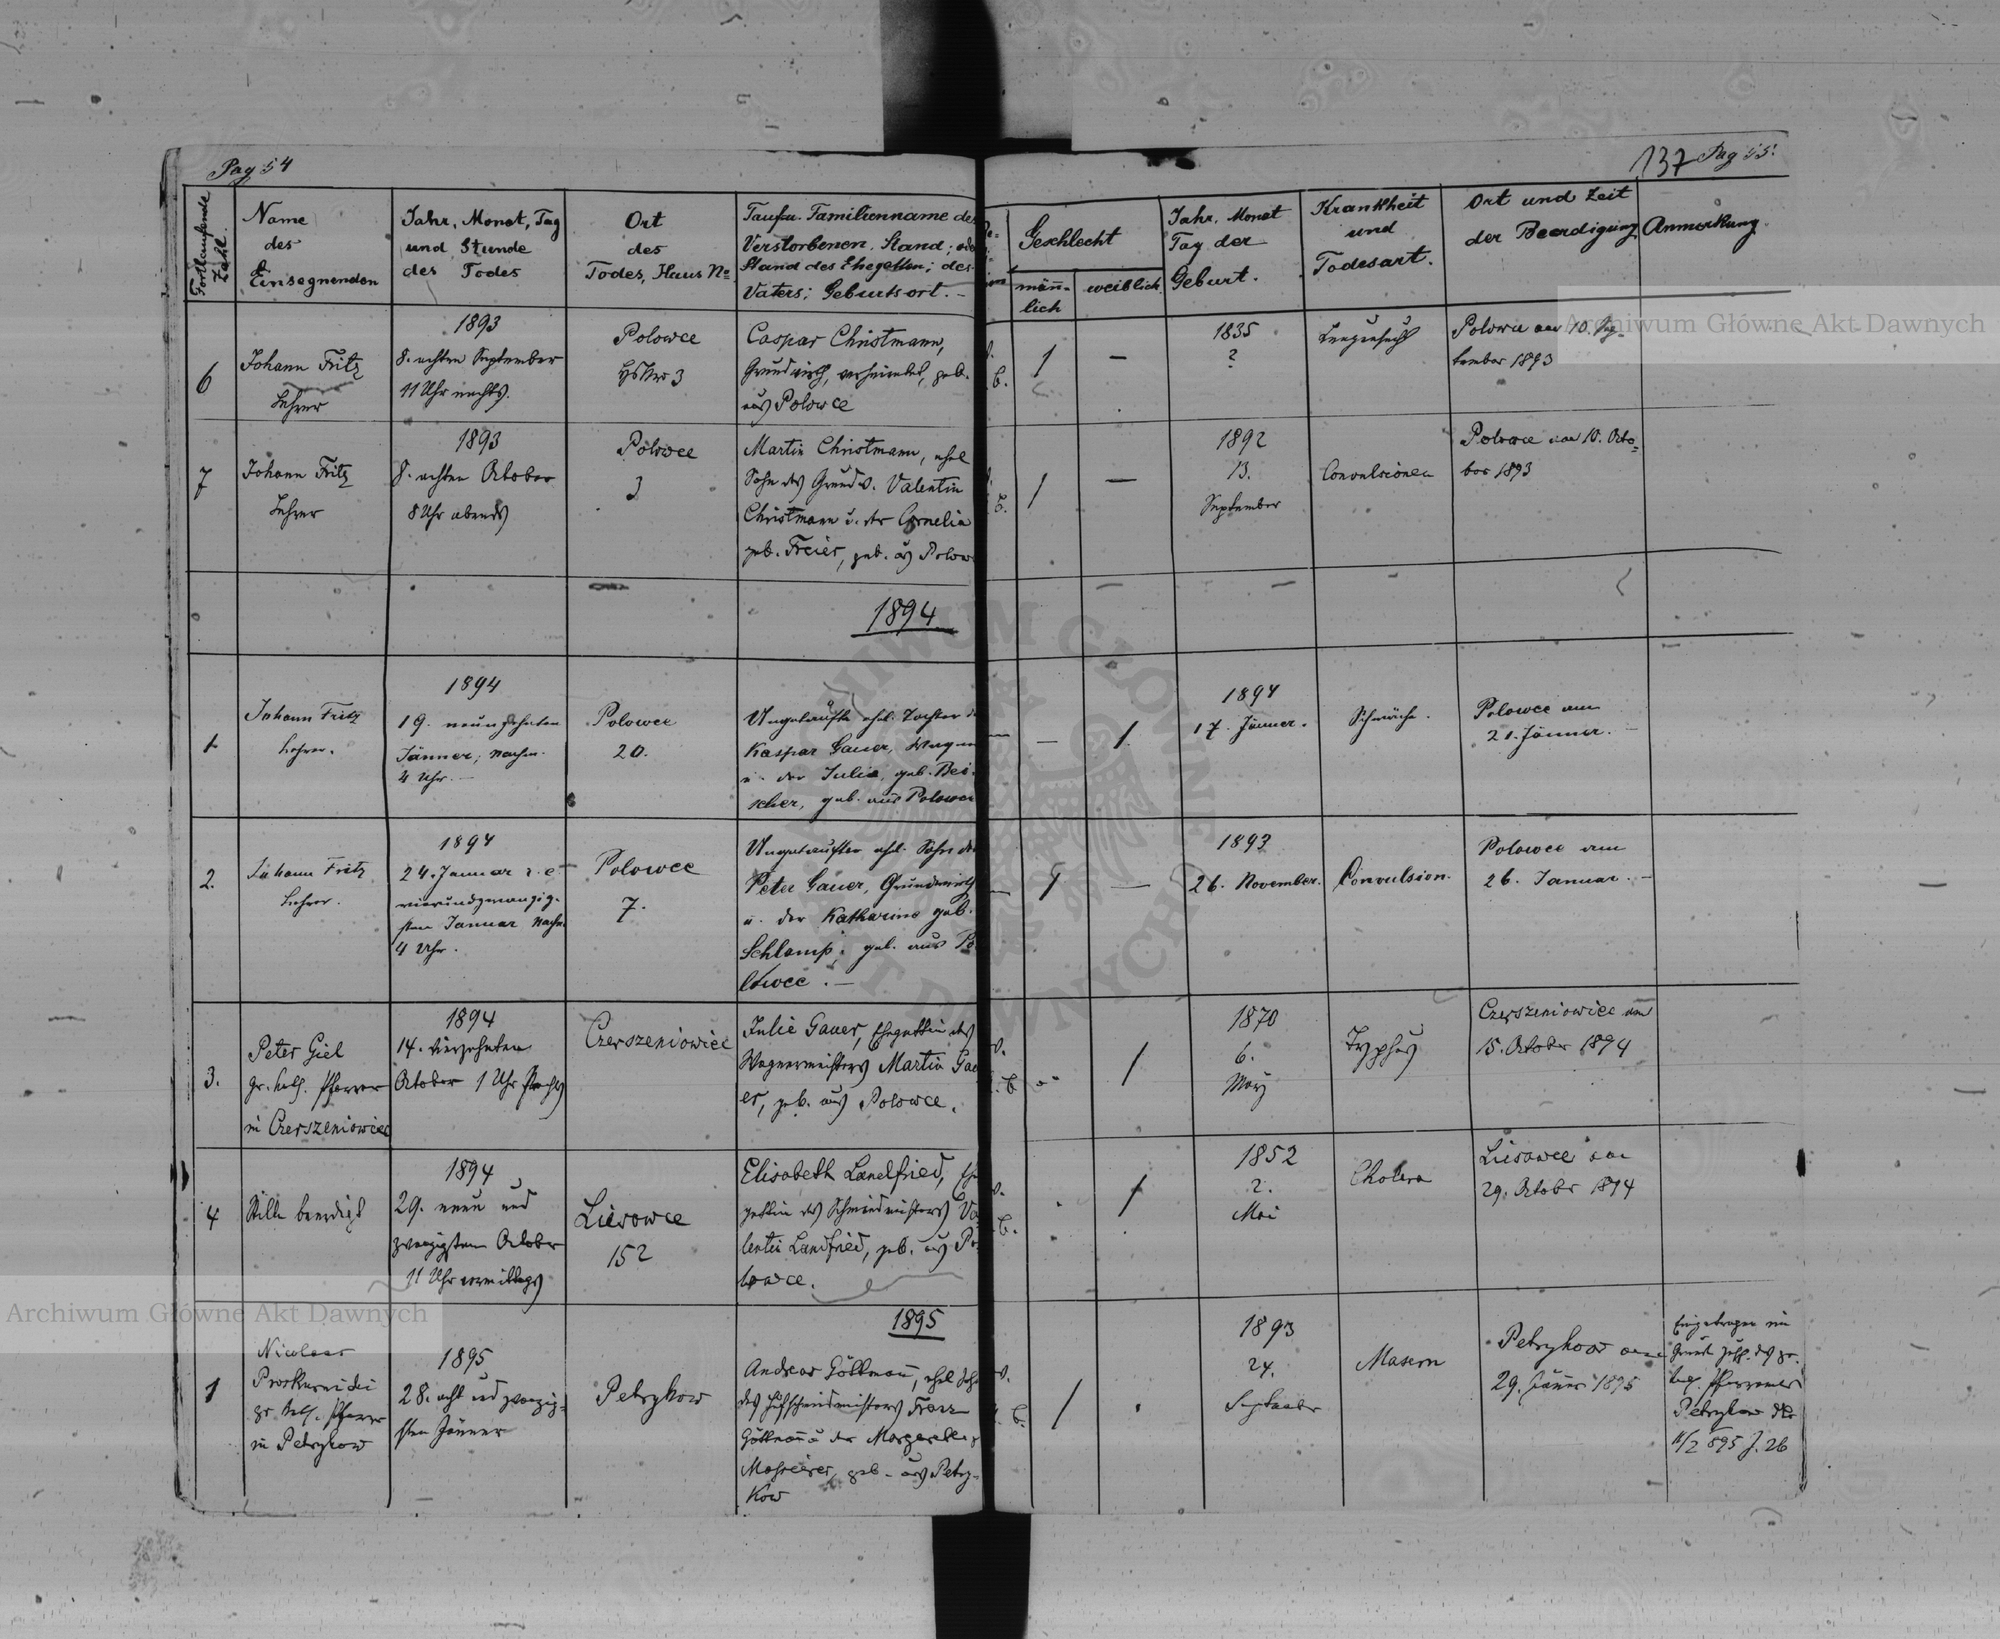 Pag 54
137 Pag 55.
Fortlaufende Zahl.
Name
des
Einsegnenden
Jahr, Monat, Tag
und Stunde
des Todes
Ort
des
Todes, Haus No
Tauf u. Familienname des
Verstorbenen, Stand; oder
Stand des Ehegatten; des
Vaters; Geburtsort. –
Geschlecht
männ-
lich
weiblich.
Jahr, Monat
Tag der
Geburt.
Krankheit
und
Todesart.
Ort und Zeit
der Beerdigung
Anmerkung
6
Johann Fritz
Lehrer
1893
8. achten September
11 Uhr nachts.
Polowce
HsNro 3
Caspar Christmann,
Grundwirth, verheiratet, geb.
aus Polowce
B.
1
—
1835
?
Lungensucht
Polowce am 10. Sep-
tember 1893
7
Johann Fritz
Lehrer
1893
8. achten October
8 Uhr abends
Polowce
3
Martin Christmann, ehel
Sohn des Grundw. Valentin
Christmann u. der Cornelia
geb. Freier, geb. aus Polow
B.
1
—
1892
13.
September
Convulsionen
Polowce am 10. Octo-
ber 1893
1894
1
Johann Fritz
Lehrer.
1894
19. neunzehnten
Jänner, nachm.
4 Uhr. –
Polowce
20.
Ungetaufte ehel. Tochter d
Kaspar Gauer, Wagn
u. der Julia, geb. Bei-
scher, geb. aus Polowce
—
—
1.
1894
17. Jänner.
Schwäche.
Polowce am
21. Jänner. –
2.
Johann Fritz
Lehrer.
1894
24. Januar i. e
vierundzwanzig-
sten Januar nachm.
4 Uhr.
Polowce
7.
Ungetaufter ehel. Sohn de
Peter Gauer, Grundwirth
u. der Katharine geb.
Schlamp, geb. aus Po
lowce. –
—
1
—
1893
26. November.
Convulsion.
Polowce am
26. Januar. –
3.
Peter Giel
gr. kath. Pfarrer
in Czerszeniowice
1894
14. vierzehnten
October 1 Uhr Nachts
Czerszeniowice
Julie Gauer, Ehegattin des
Wagnermeisters Martin Gau
er, geb. aus Polowce.
B
1
1870
6.
May
Typhus
Czerszeniowice am
15. October 1894
4
Stille beerdigt
1894
29. neun und
zwanzigsten October
11 Uhr vormittags
Lisowce
152
Elisabeth Landfried, Ehe
gattin des Schmiedmeisters Va
lentin Landfried, geb. aus Po-
lowce.
B.
1
1852
2.
Mai
Cholera
Lisowce am
29. October 1894
1895
1
Nicolaus
gr. kath. Pfarrer
in Petrykow
1895
28. acht und zwanzig-
sten Jänner
Petrykow
Andreas Göttmann, ehel Sohn
des Hufschmiedmeisters Franz
Göttmann u der Margaretha g
geb. aus Petry-
kow
B.
1
1893
24.
September
Masern
Petrykow am
29. Jänner 1895
Eingetragen im
Grund Zusch. des gr.
kath. Pfarramtes
Petrykow dto
11/2 895 Z. 26
Archiwum Główne Akt Dawnych
Archiwum Główne Akt Dawnych
ARCHIWUM GŁÓWNE AKT DAWNYCH